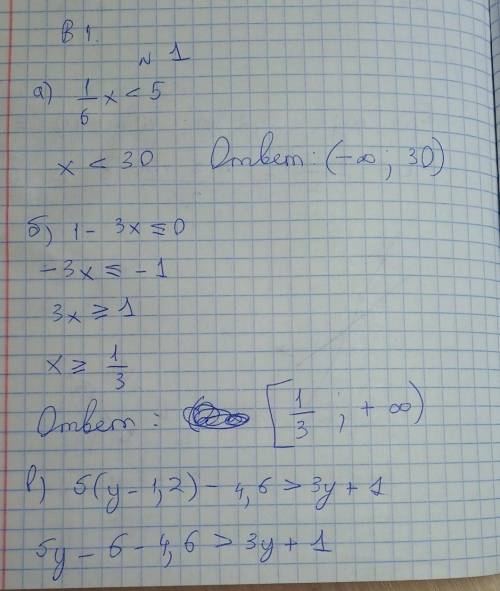 В 1.
N 1
а) 1/6 x < 5
x < 30 Ответ: (-∞; 30)
б) 1 - 3x ≤ 0
-3x ≤ -1
3x ≥ 1
x ≥ 1/3
Ответ: [1/3; +∞)
в) 5(y - 1,2) - 4,6 > 3y + 1
5y - 6 - 4,6 > 3y + 1